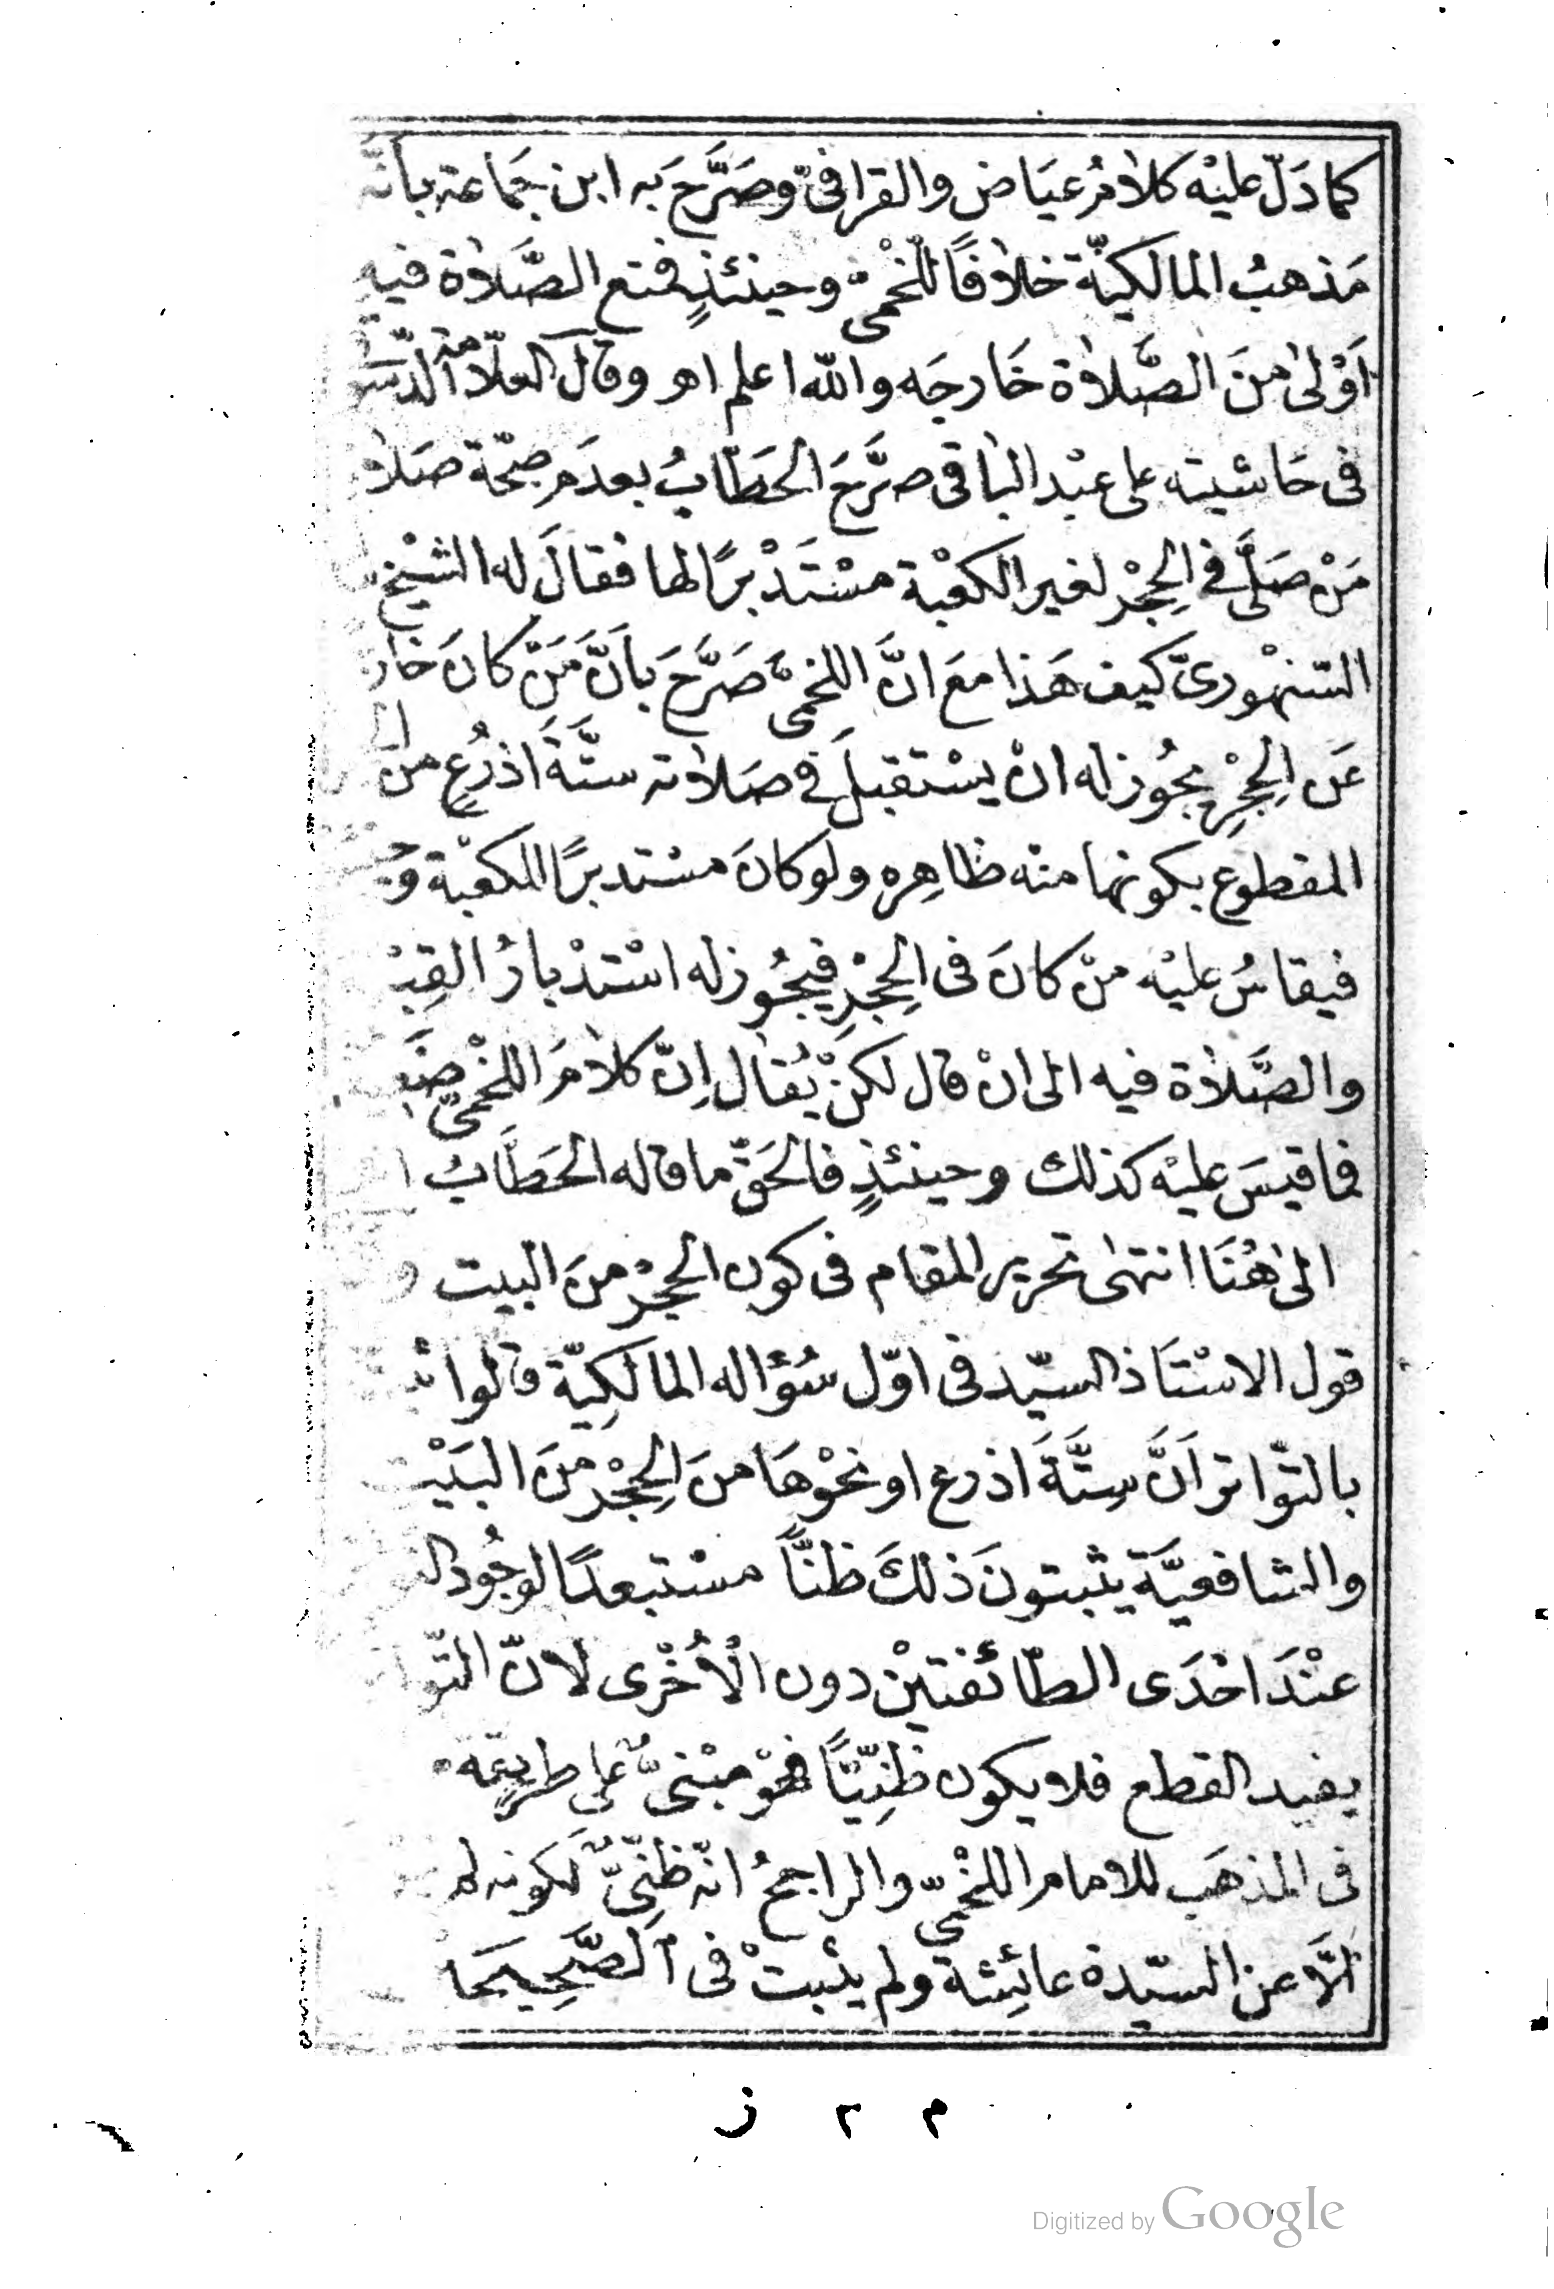 كما دَلّ عليْه كلامُ عيَاض والقرافىّ وصَرَّحَ به ابن جَماعة بانّه
مَذهبُ المالكيّة خلافًا للّخْمىّ وحينئذٍ فمنع الصَّلاة فيه
اَوْلىٰ منَ الصَّلاة خَارجَه والله اعلم اهـ وقالَ العلّامة
فى حَاشيته على عبْد الباقى صرَّحَ الحَطّابُ بعدَم صحّة
مَنْ صَلَّى فى الحِجْر لغير الكعْبة مسْتَدْبرًا لها فقالَ له الشيْخ
السّنهْورىّ كيف هَذا معَ انَّ اللخمىّ صَرَّحَ بأنَّ مَنْ كانَ
عَن الحِجْرِ يجُوز له انْ يسْتقبلَ فى صَلاته ستَّةَ اذرُعٍ من
المقطوع بكونها منْه ظاهِرِه ولو كانَ مستدبرًا للكعْبة
فيقاسُ عليْه منْ كانَ فى الحِجْرِ فيجُوز له اسْتدْبارُ
والصَّلاة فيه الى انْ قال لكنْ يُقال اِنّ كلامَ اللخْمىّ
فما قيسَ عليْه كذلك وحينئذٍ فالحَقّ ما قاله الحَطَّابُ
الىٰ هُنَا انتهىٰ تحرير المقام فى كون الحِجْرْ منَ البيت
قول الاسْتَاذ السيّد فى اوّل سُؤاله المالكِيّة قالوا
بالتّواتر اَنَّ سِتَّةَ اذرع او نحْوهَا منَ الحِجْرْ منَ البَيْت
والشافعيَّة يثبتونَ ذلكَ ظنًّا مسْتبعدًا لوجُود
عنْدَ احْدَى الطّائفتيْن دون الْاُخْرى لانّ
يفيد القطع فلا يكون ظنِّيًّا فهْو مبْنىٌّ على طريقة
فى المذهَب للامام اللخْمىّ والراجحُ انّه ظنّىٌّ لكونه لم
اِلَّا عن السيّدة عائِشة ولم يثْبتْ فى الصَّحِيحَا
م ٢ ز
Digitized by Google